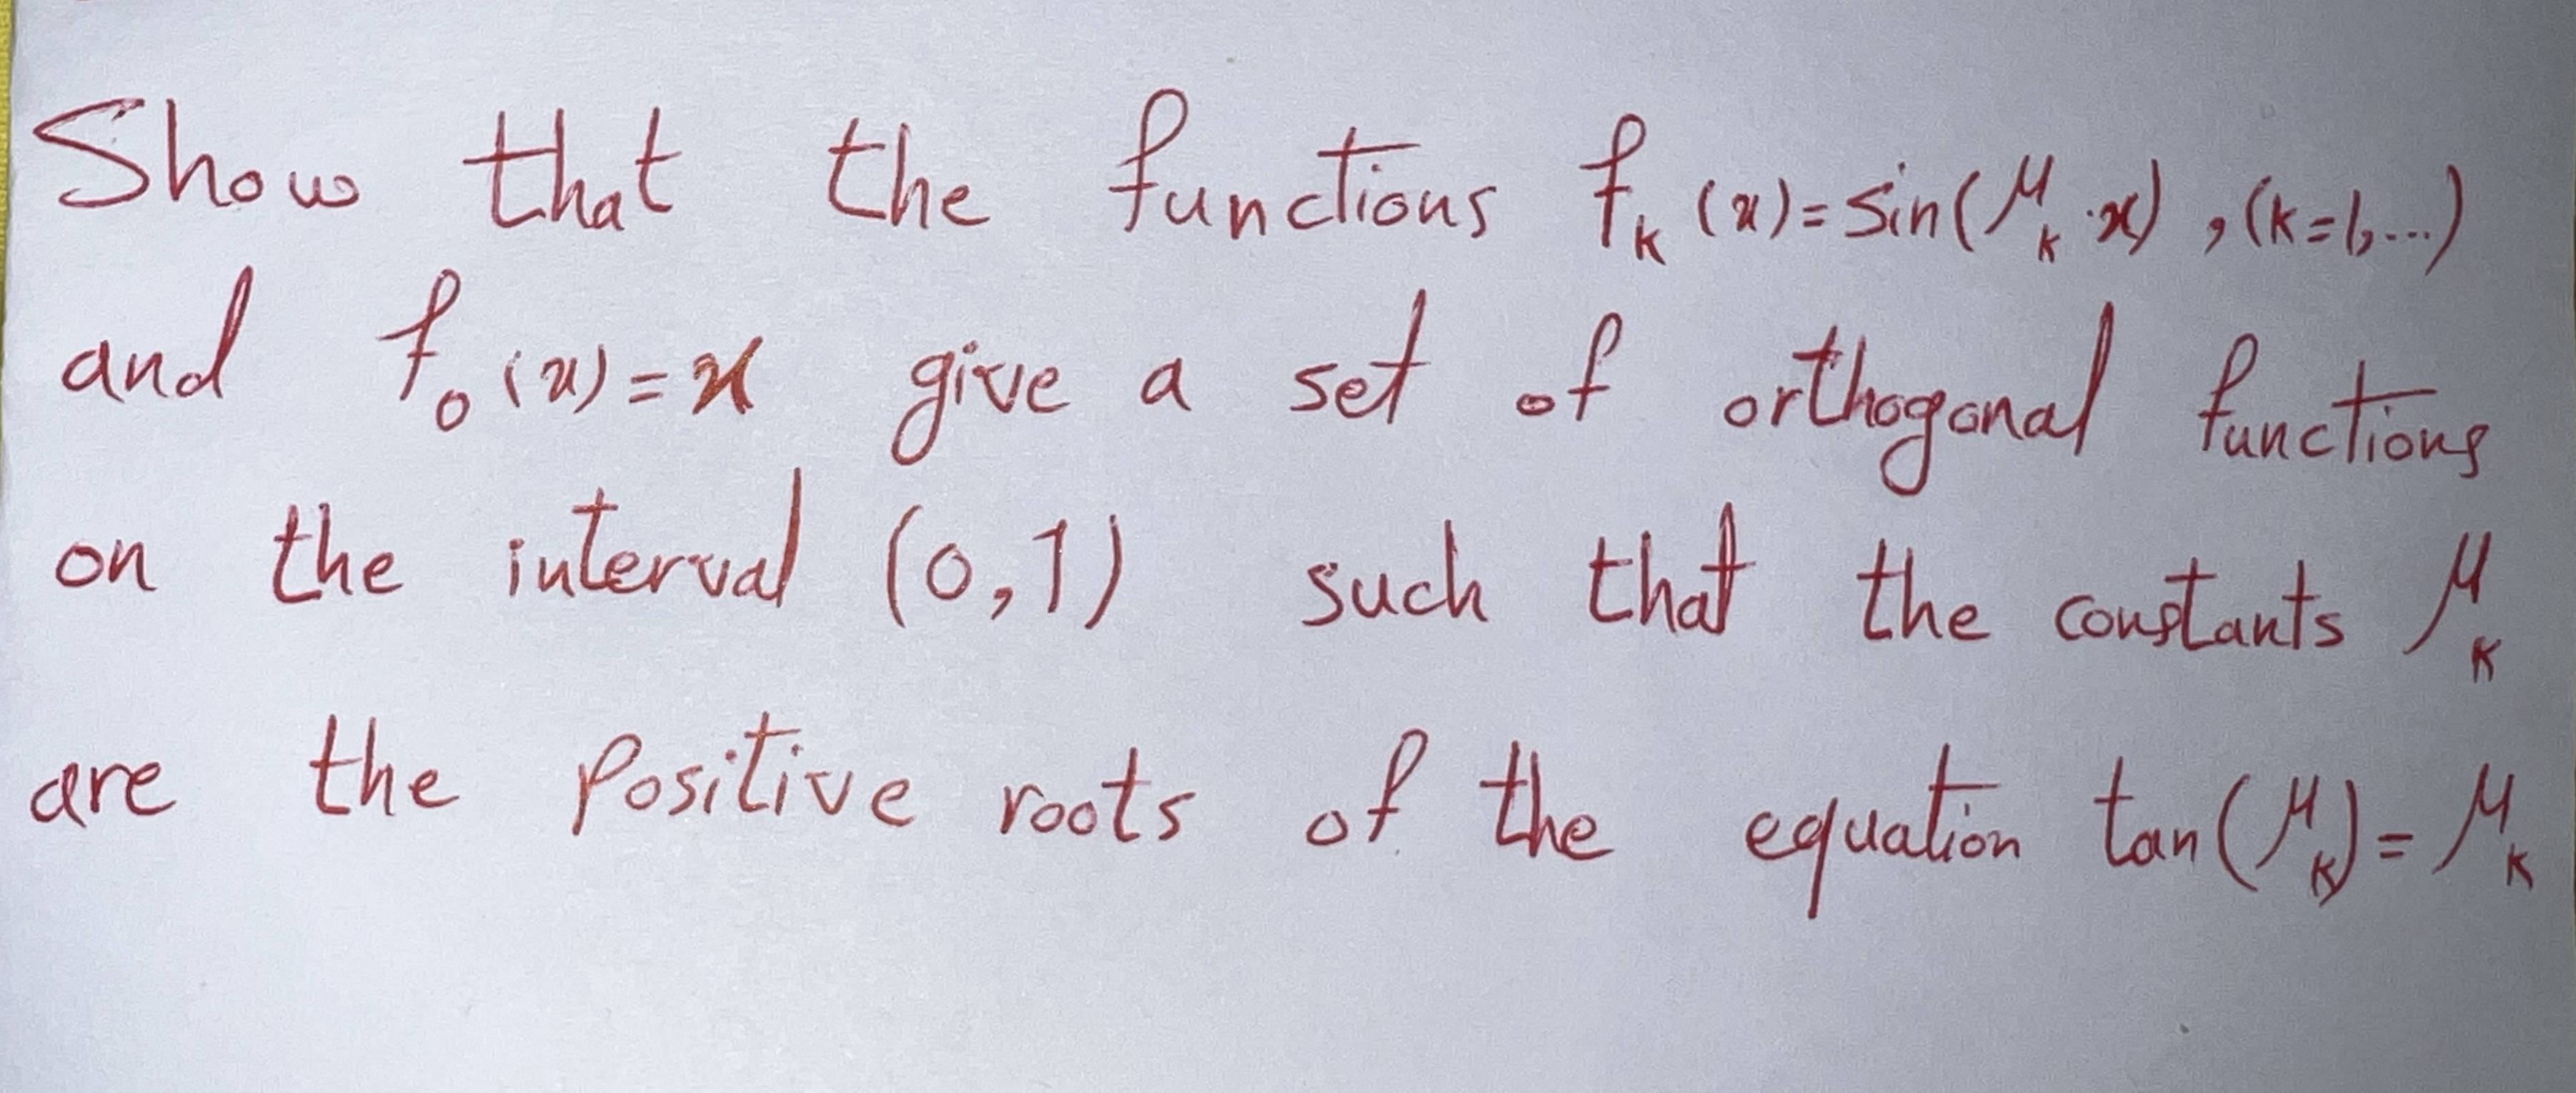 Show that the functions f_k (x) = sin(μ_k · x) , (k=1,...)
and f_0 (x) = x give a set of orthogonal functions
on the interval (0,1) such that the constants μ_k
are the positive roots of the equation tan(μ_k) = μ_k